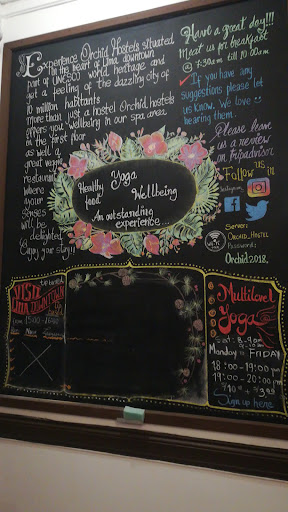 Experience Orchid Hostels situated
in the heart of Lima downtown
part of UNESCO world heritage and
get a feeling of the dazzling city of
10 million habitants
More than just a hostel Orchid hostels
offers you Wellbeing in our spa area
on the first floor
as well a
great veggie
restaurant
where
your
senses
will be
delighted
Enjoy your stay!!
Have a great day!!!
Meet us for breakfast
7:30am till 10:00am
✓ If you have any
suggestions please let
us know. We love
hearing them.
Please leave
us a review
on tripadvisor
Follow
us in
Instagram
Server:
Orchid_Hostel
Password:
Orchid2018.
Yoga
Healthy
food
Wellbeing
An outstanding
experience...
VISIT
LIMA DOWNTOWN
Multilevel
Yoga
Sat: 8-9am
Monday to FRIDAY
18:00 - 19:00 pm
19:00 - 20:00 pm
Sign up here